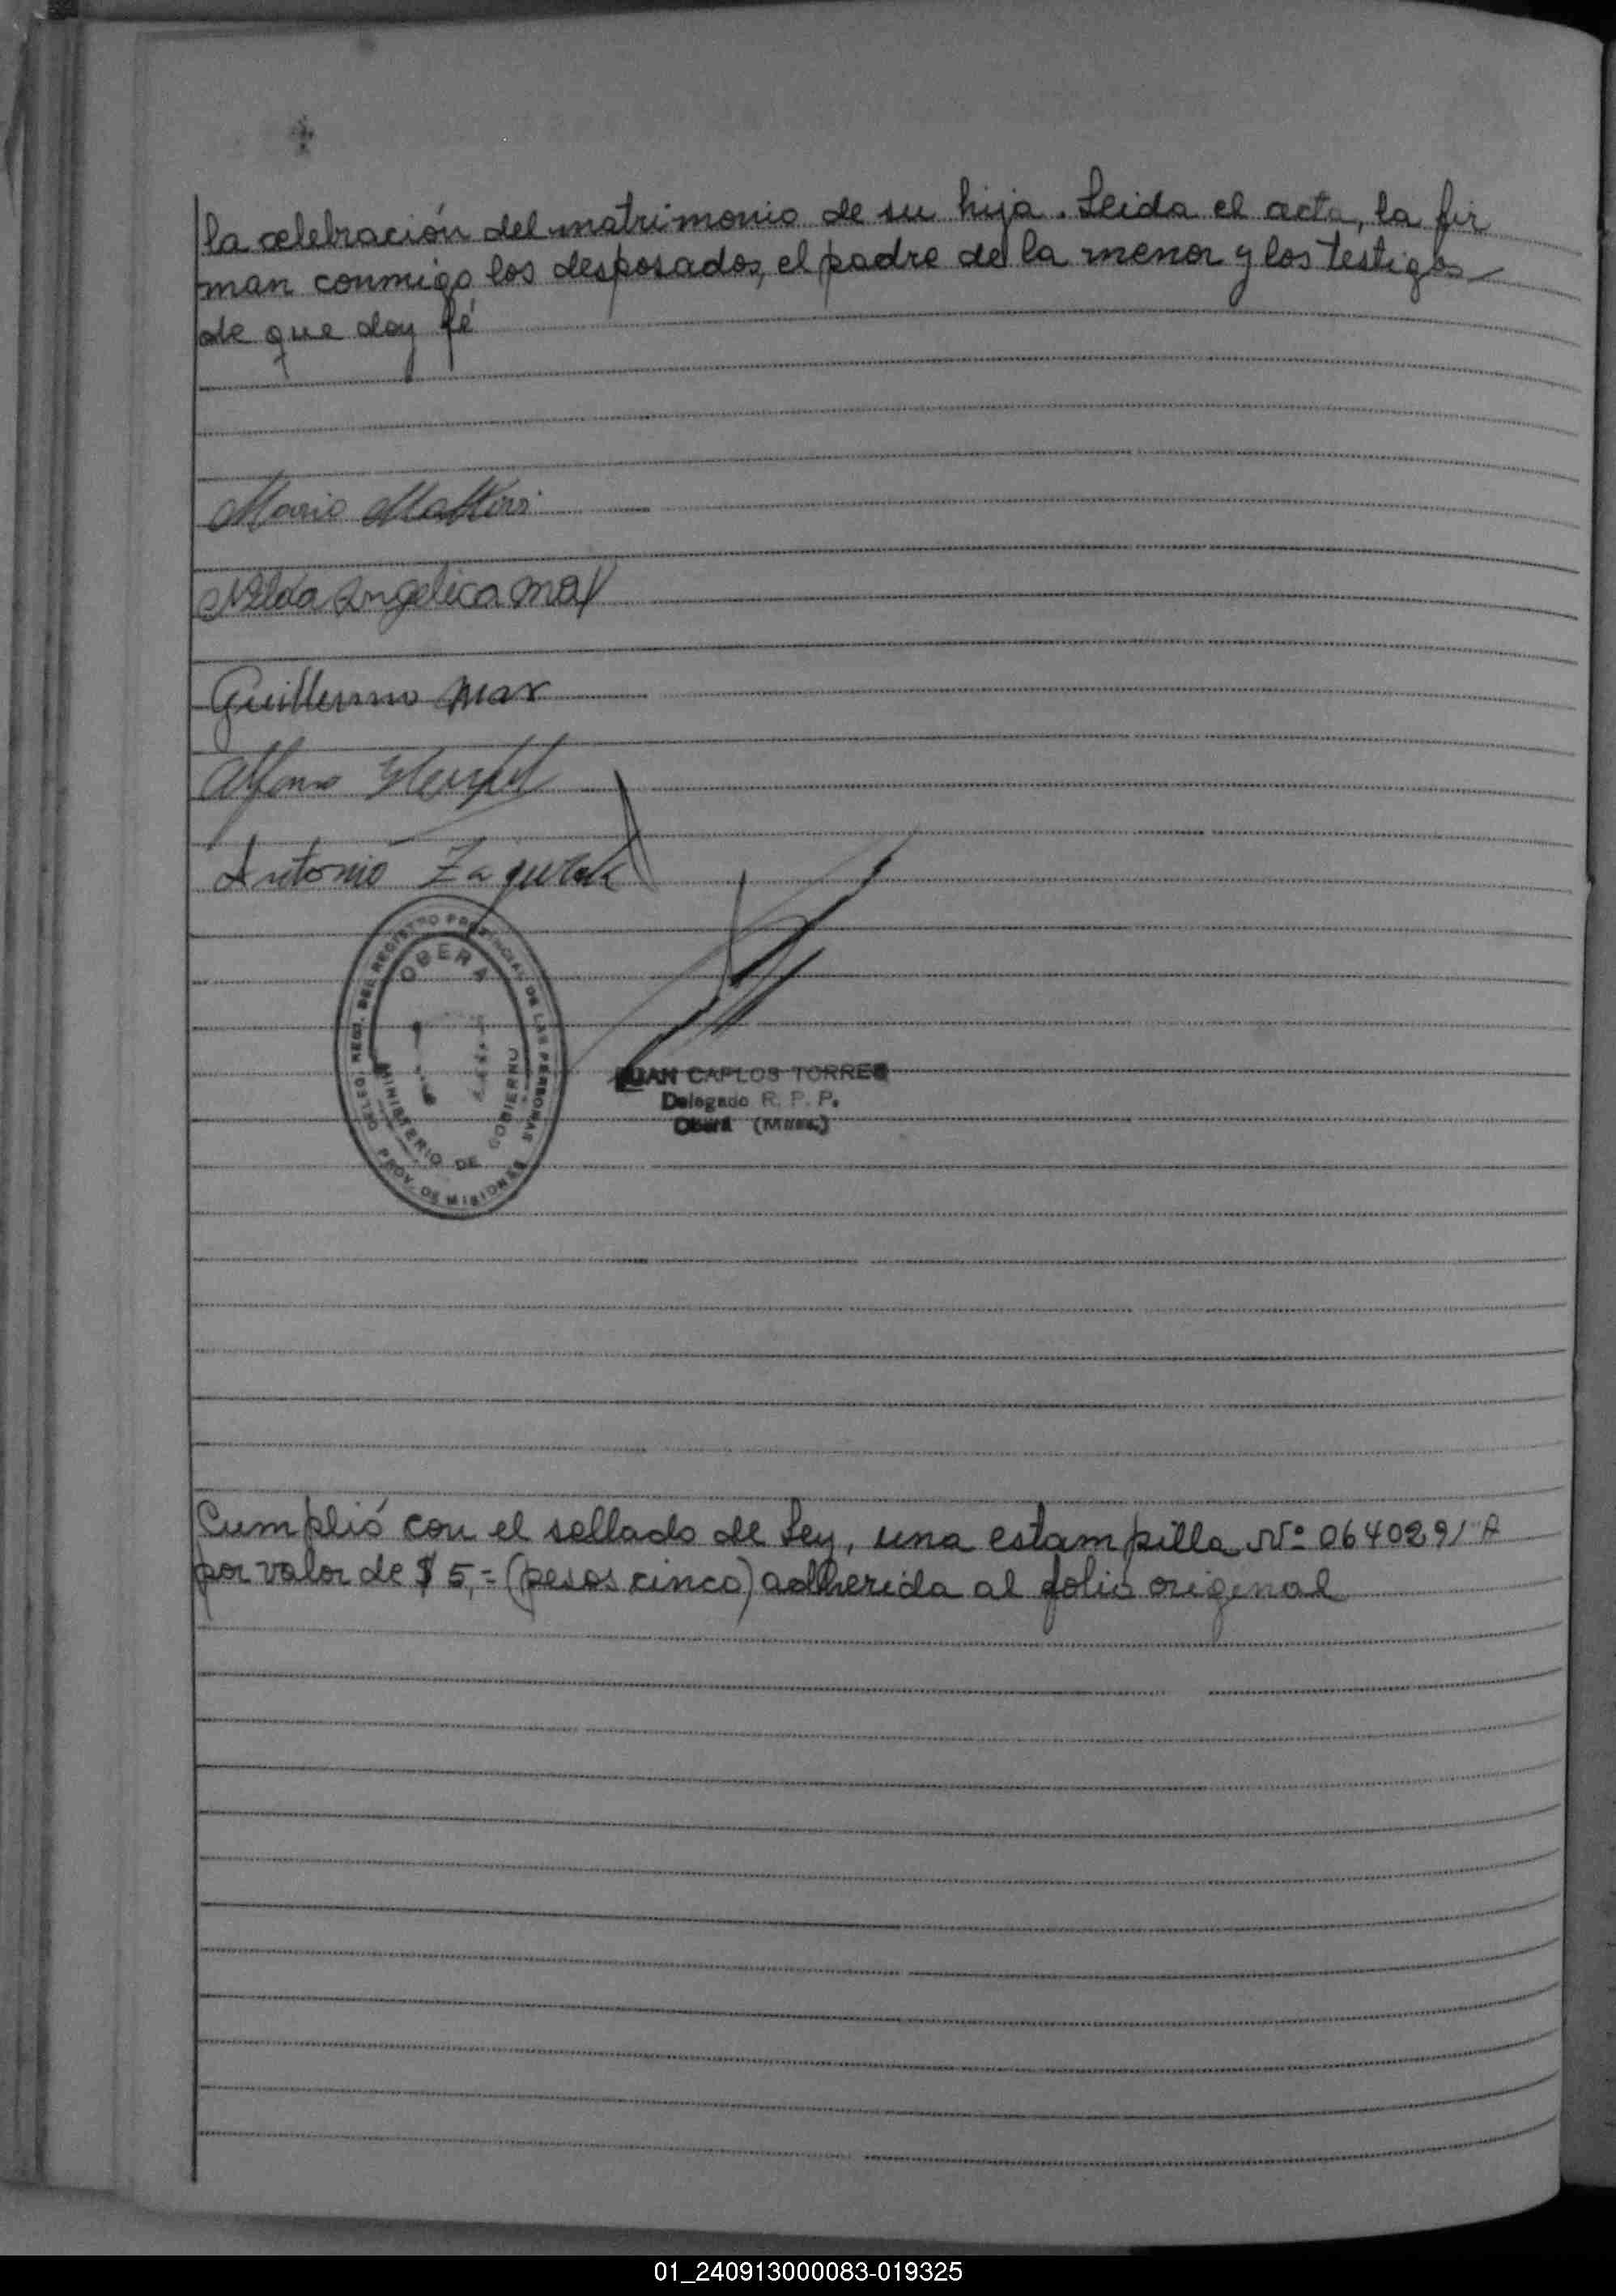 la celebración del matrimonio de su hija. Leida el acta, la fir
man conmigo los desposados, el padre de la menor y los testigos
de que doy fé
Mario
Nélda Angelica May
Guillermo
Alfonso
Antonio
DELEG. REGI. DEL REGISTRO PROVINCIAL DE LAS PERSONAS
OBERA
MINISTERIO DE GOBIERNO
PROV. DE MISIONES
JUAN CARLOS TORRES
Delegado R. P. P.
Oberá (Mnes.)
Cumplió con el sellado de Ley, una estampilla Nº 0640291 A
por valor de $ 5,= (pesos cinco) adherida al folio original
01_240913000083-019325